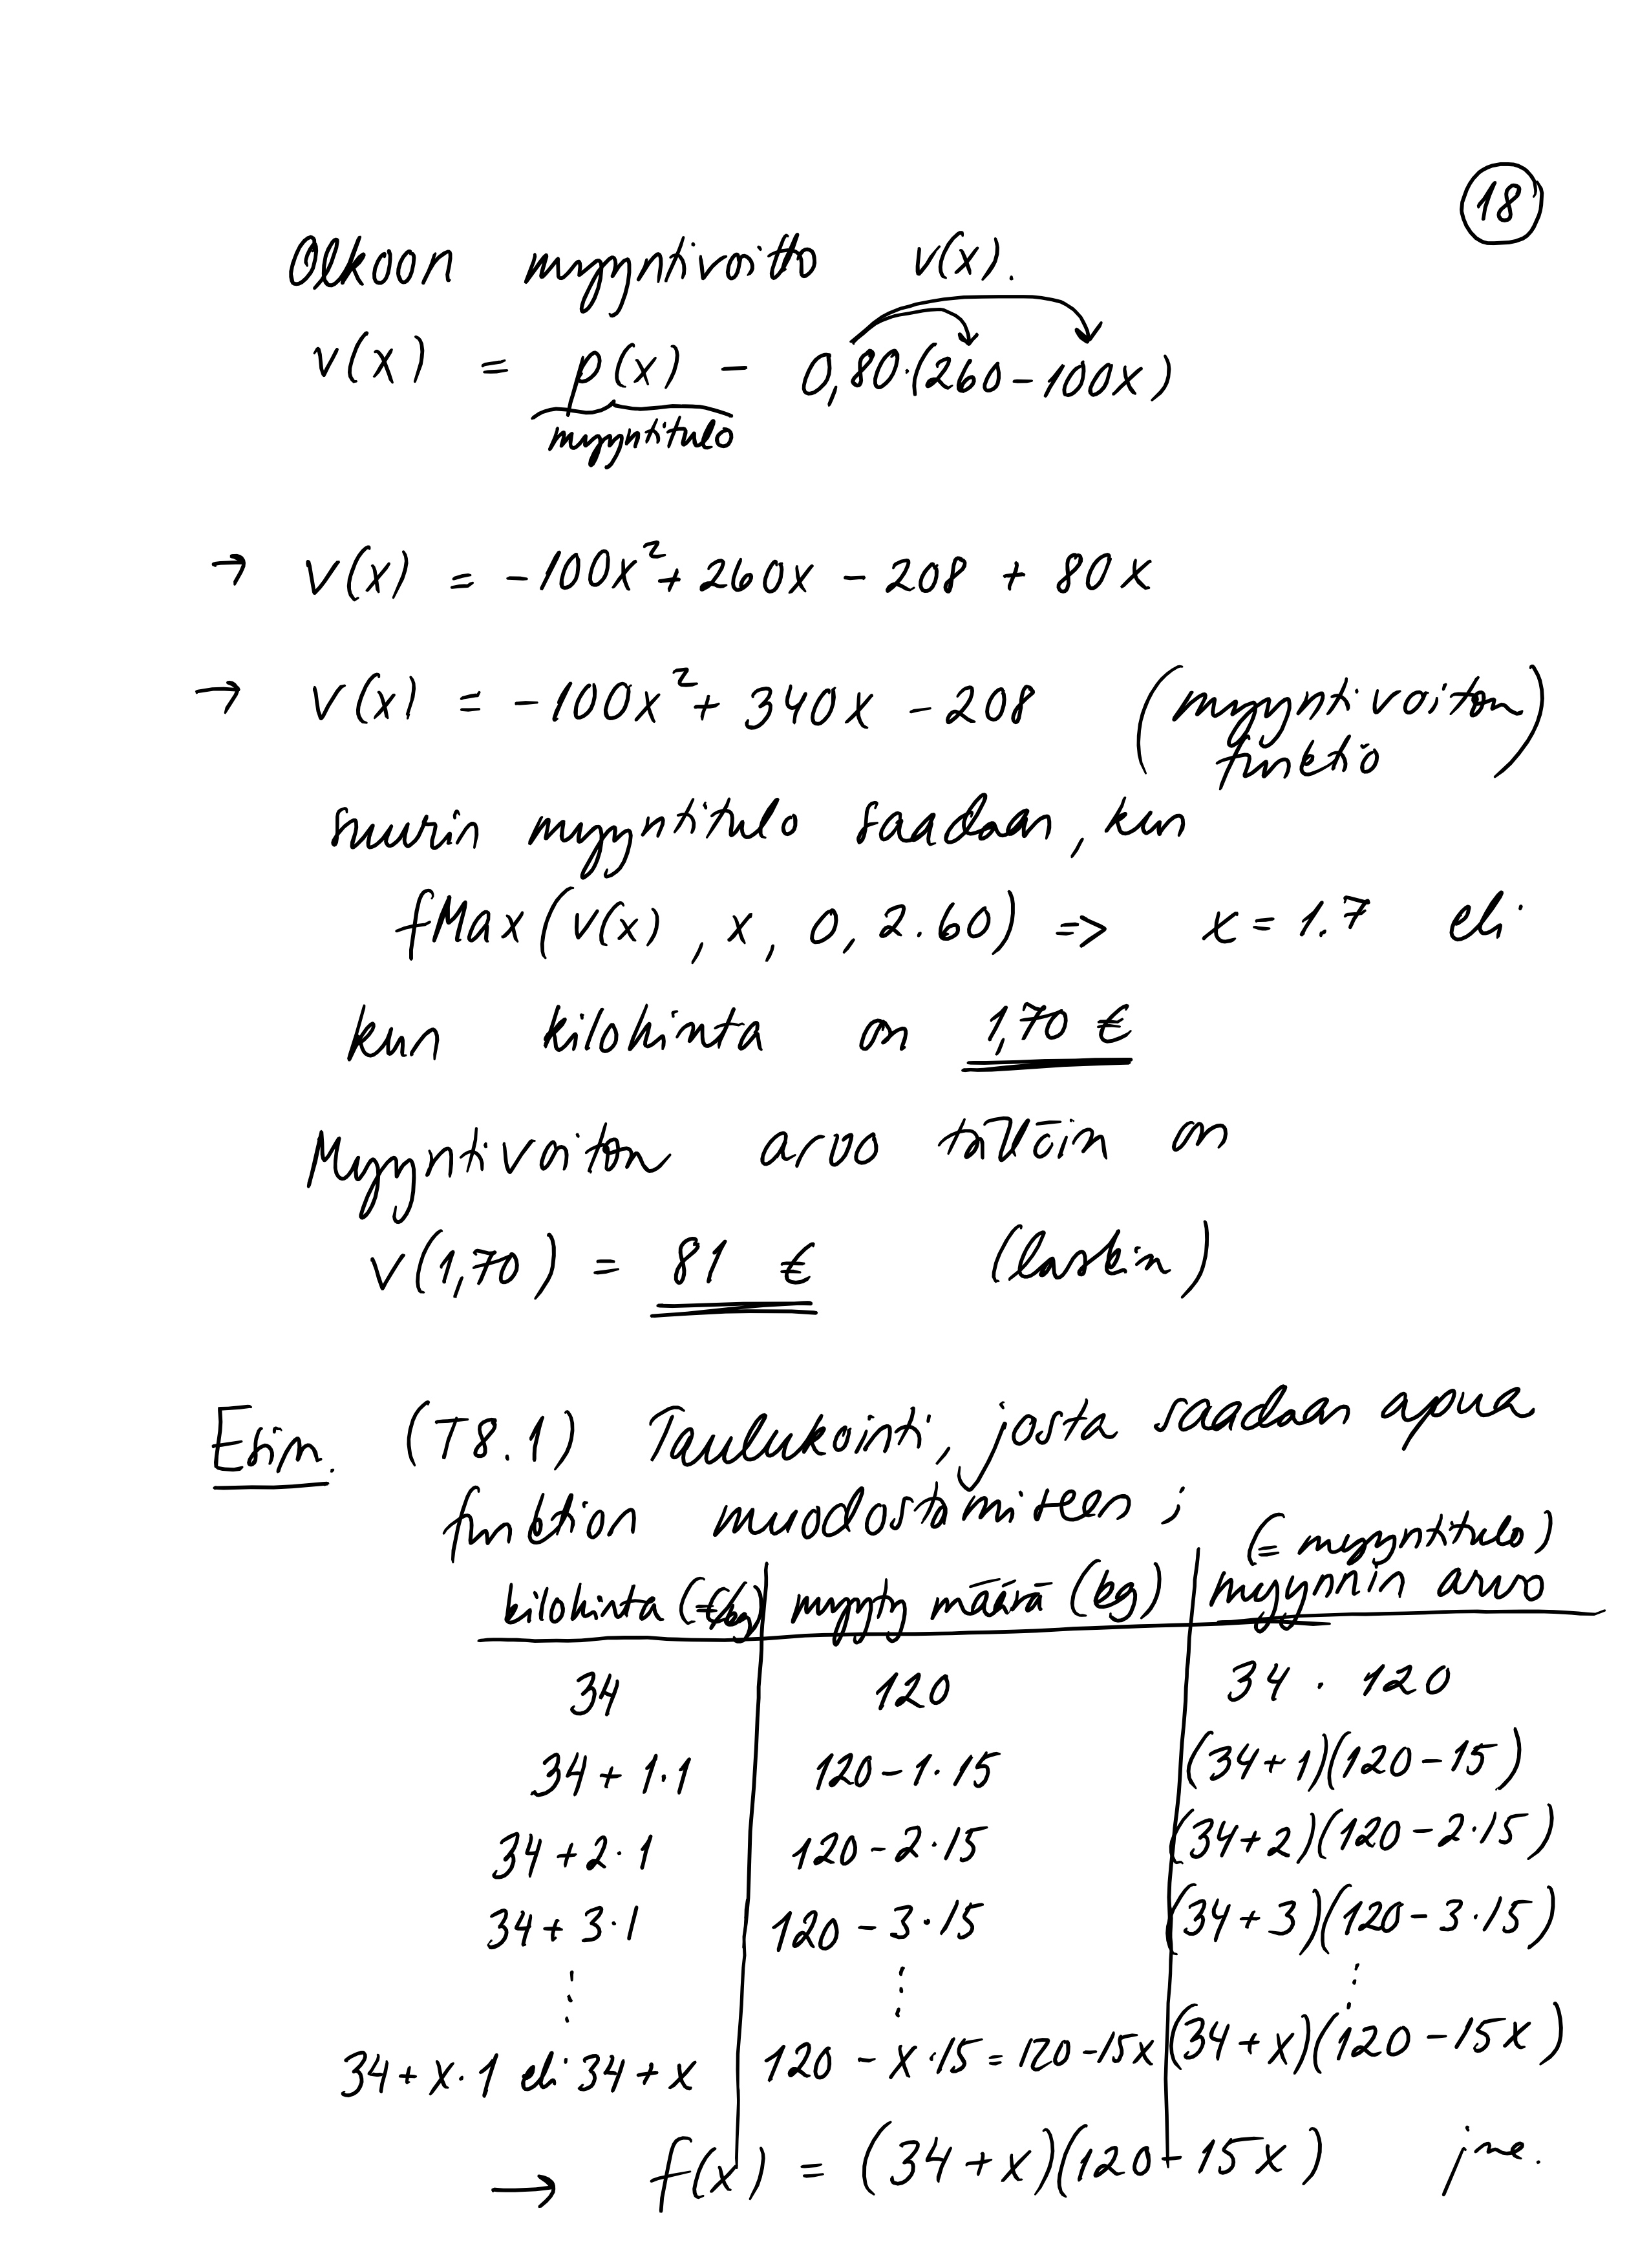 18
Olkoon myyntivoitto v(x).
v(x) = p(x) - 0,80·(260-100x)
myyntitulo
→ v(x) = -100x²+ 260x - 208 + 80x
→ v(x) = -100x²+ 340x - 208 (myyntivoiton
funktio)
suurin myyntitulo saadaan, kun
fMax(v(x), x, 0, 2.60) => x = 1.7 eli
kun kilohinta on 1,70 €
Myyntivoiton arvo tällöin on
v(1,70) = 81 € (laskin)
Esim. (T8.1) Taulukointi, josta saadaan apua
funktion muodostamiseen ;
(= myyntitulo)
kilohinta (€/kg) myyty määrä (kg) myynnin arvo
34 120 34 · 120
34 + 1·1 120-1·15 (34+1)(120-15)
34+2·1 120-2·15 (34+2)(120-2·15)
34+ 3·1 120-3·15 (34+3)(120-3·15)
⋮ ⋮ ⋮
34+x·1 eli 34+x 120 - x·15 = 120-15x (34+x)(120-15x)
→ f(x) = (34+x)(120-15x) jne.